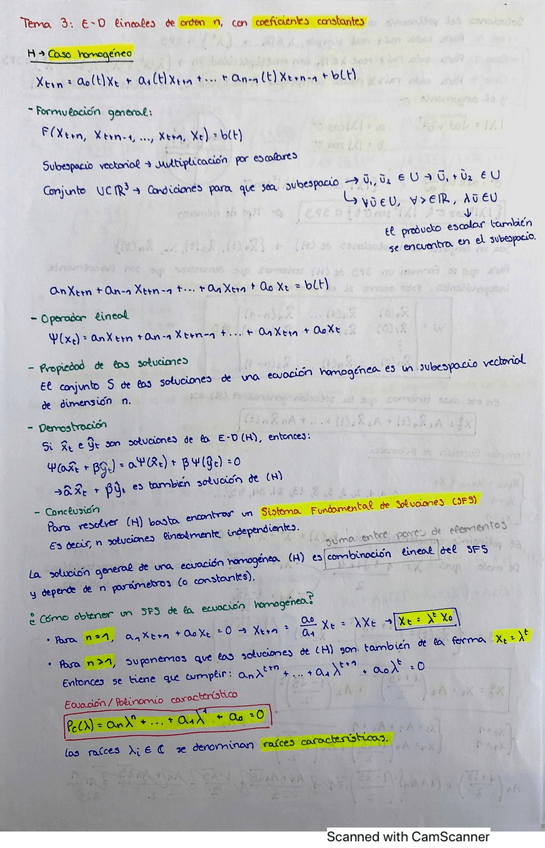 Tema 3: E-D lineales de orden n, con coeficientes constantes
H → Caso homogéneo
Xt+n = a0(t)Xt + a1(t)Xt+1 + ... + an-1(t)Xt+n-1 + b(t)
- Formulación general:
F(Xt+n, Xt+n-1, ..., Xt+1, Xt) = b(t)
Subespacio vectorial → Multiplicación por escalares
Conjunto UCℝ³ → Condiciones para que sea subespacio → ū1, ū2 ∈ U → ū1 + ū2 ∈ U
↳ ∀ū∈U, ∀λ∈ℝ, λū∈U
↓
El producto escalar también
se encuentra en el subespacio.
anXt+n + an-1 Xt+n-1 + ... + a1Xt+1 + a0 Xt = b(t)
- Operador lineal
Ψ(Xt) = anXt+n + an-1 Xt+n-1 + ... + a1Xt+1 + a0Xt
- Propiedad de las soluciones
El conjunto S de las soluciones de una ecuación homogénea es un subespacio vectorial
de dimensión n.
- Demostración
Si x̂t e ŷt son soluciones de la E-D(H), entonces:
Ψ(αx̂t + βŷt) = αΨ(x̂t) + βΨ(ŷt) = 0
→ αx̂t + βŷt es también solución de (H)
- Conclusión
Para resolver (H) basta encontrar un Sistema Fundamental de Soluciones (SFS)
Es decir, n soluciones linealmente independientes.
suma entre pares de elementos
La solución general de una ecuación homogénea (H) es combinación lineal del SFS
y depende de n parámetros (o constantes).
¿Cómo obtener un SFS de la ecuación homogénea?
• Para n=1, a1Xt+1 + a0Xt = 0 → Xt+1 = a0/a1 Xt = λXt → Xt = λ^t X0
• Para n>1, suponemos que las soluciones de (H) son también de la forma Xt = λ^t
Entonces se tiene que cumplir: anλ^t+n + ... + a1λ^t+1 + a0λ^t = 0
Ecuación/Polinomio característico
Pc(λ) = anλ^n + ... + a1λ^1 + a0 = 0
Las raíces λi ∈ ℂ se denominan raíces características.
Scanned with CamScanner